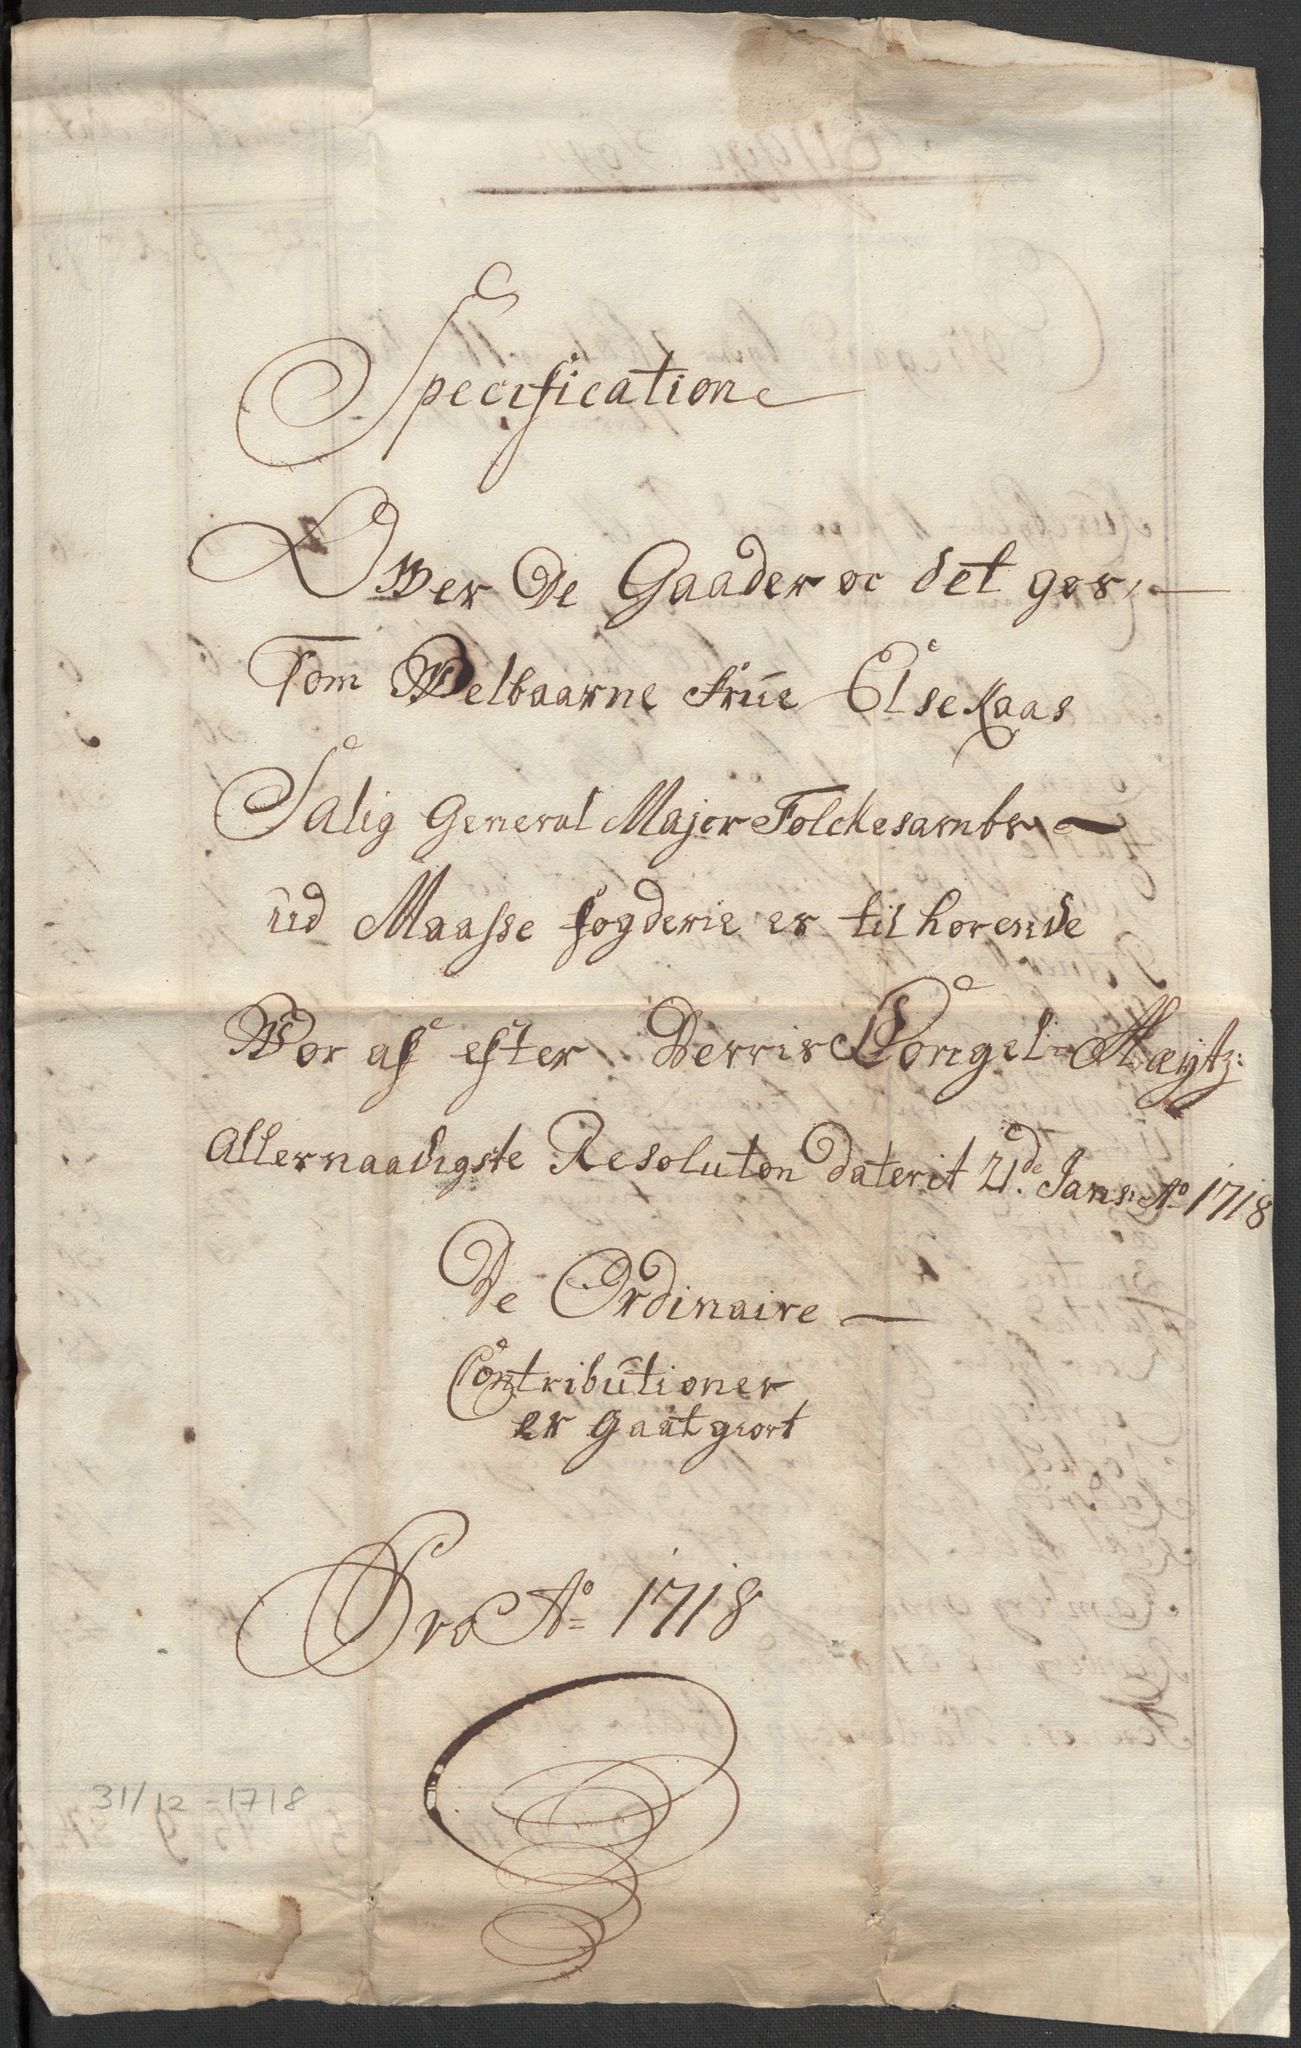 Specification
Ower De Gaader oc det gos,
Som Welbaarne früe Else Kaas
Salig General Major Folckesambs
üd Maasse fogderie er til horende
Wor af efter Derris Congel: Maytz:
Allernaadigste Resoluton daterit 21de Jans: Ao 1718
De Ordinaire
Contribütioner
er gaat giort
Pro Ao 1718
31/12 - 1718